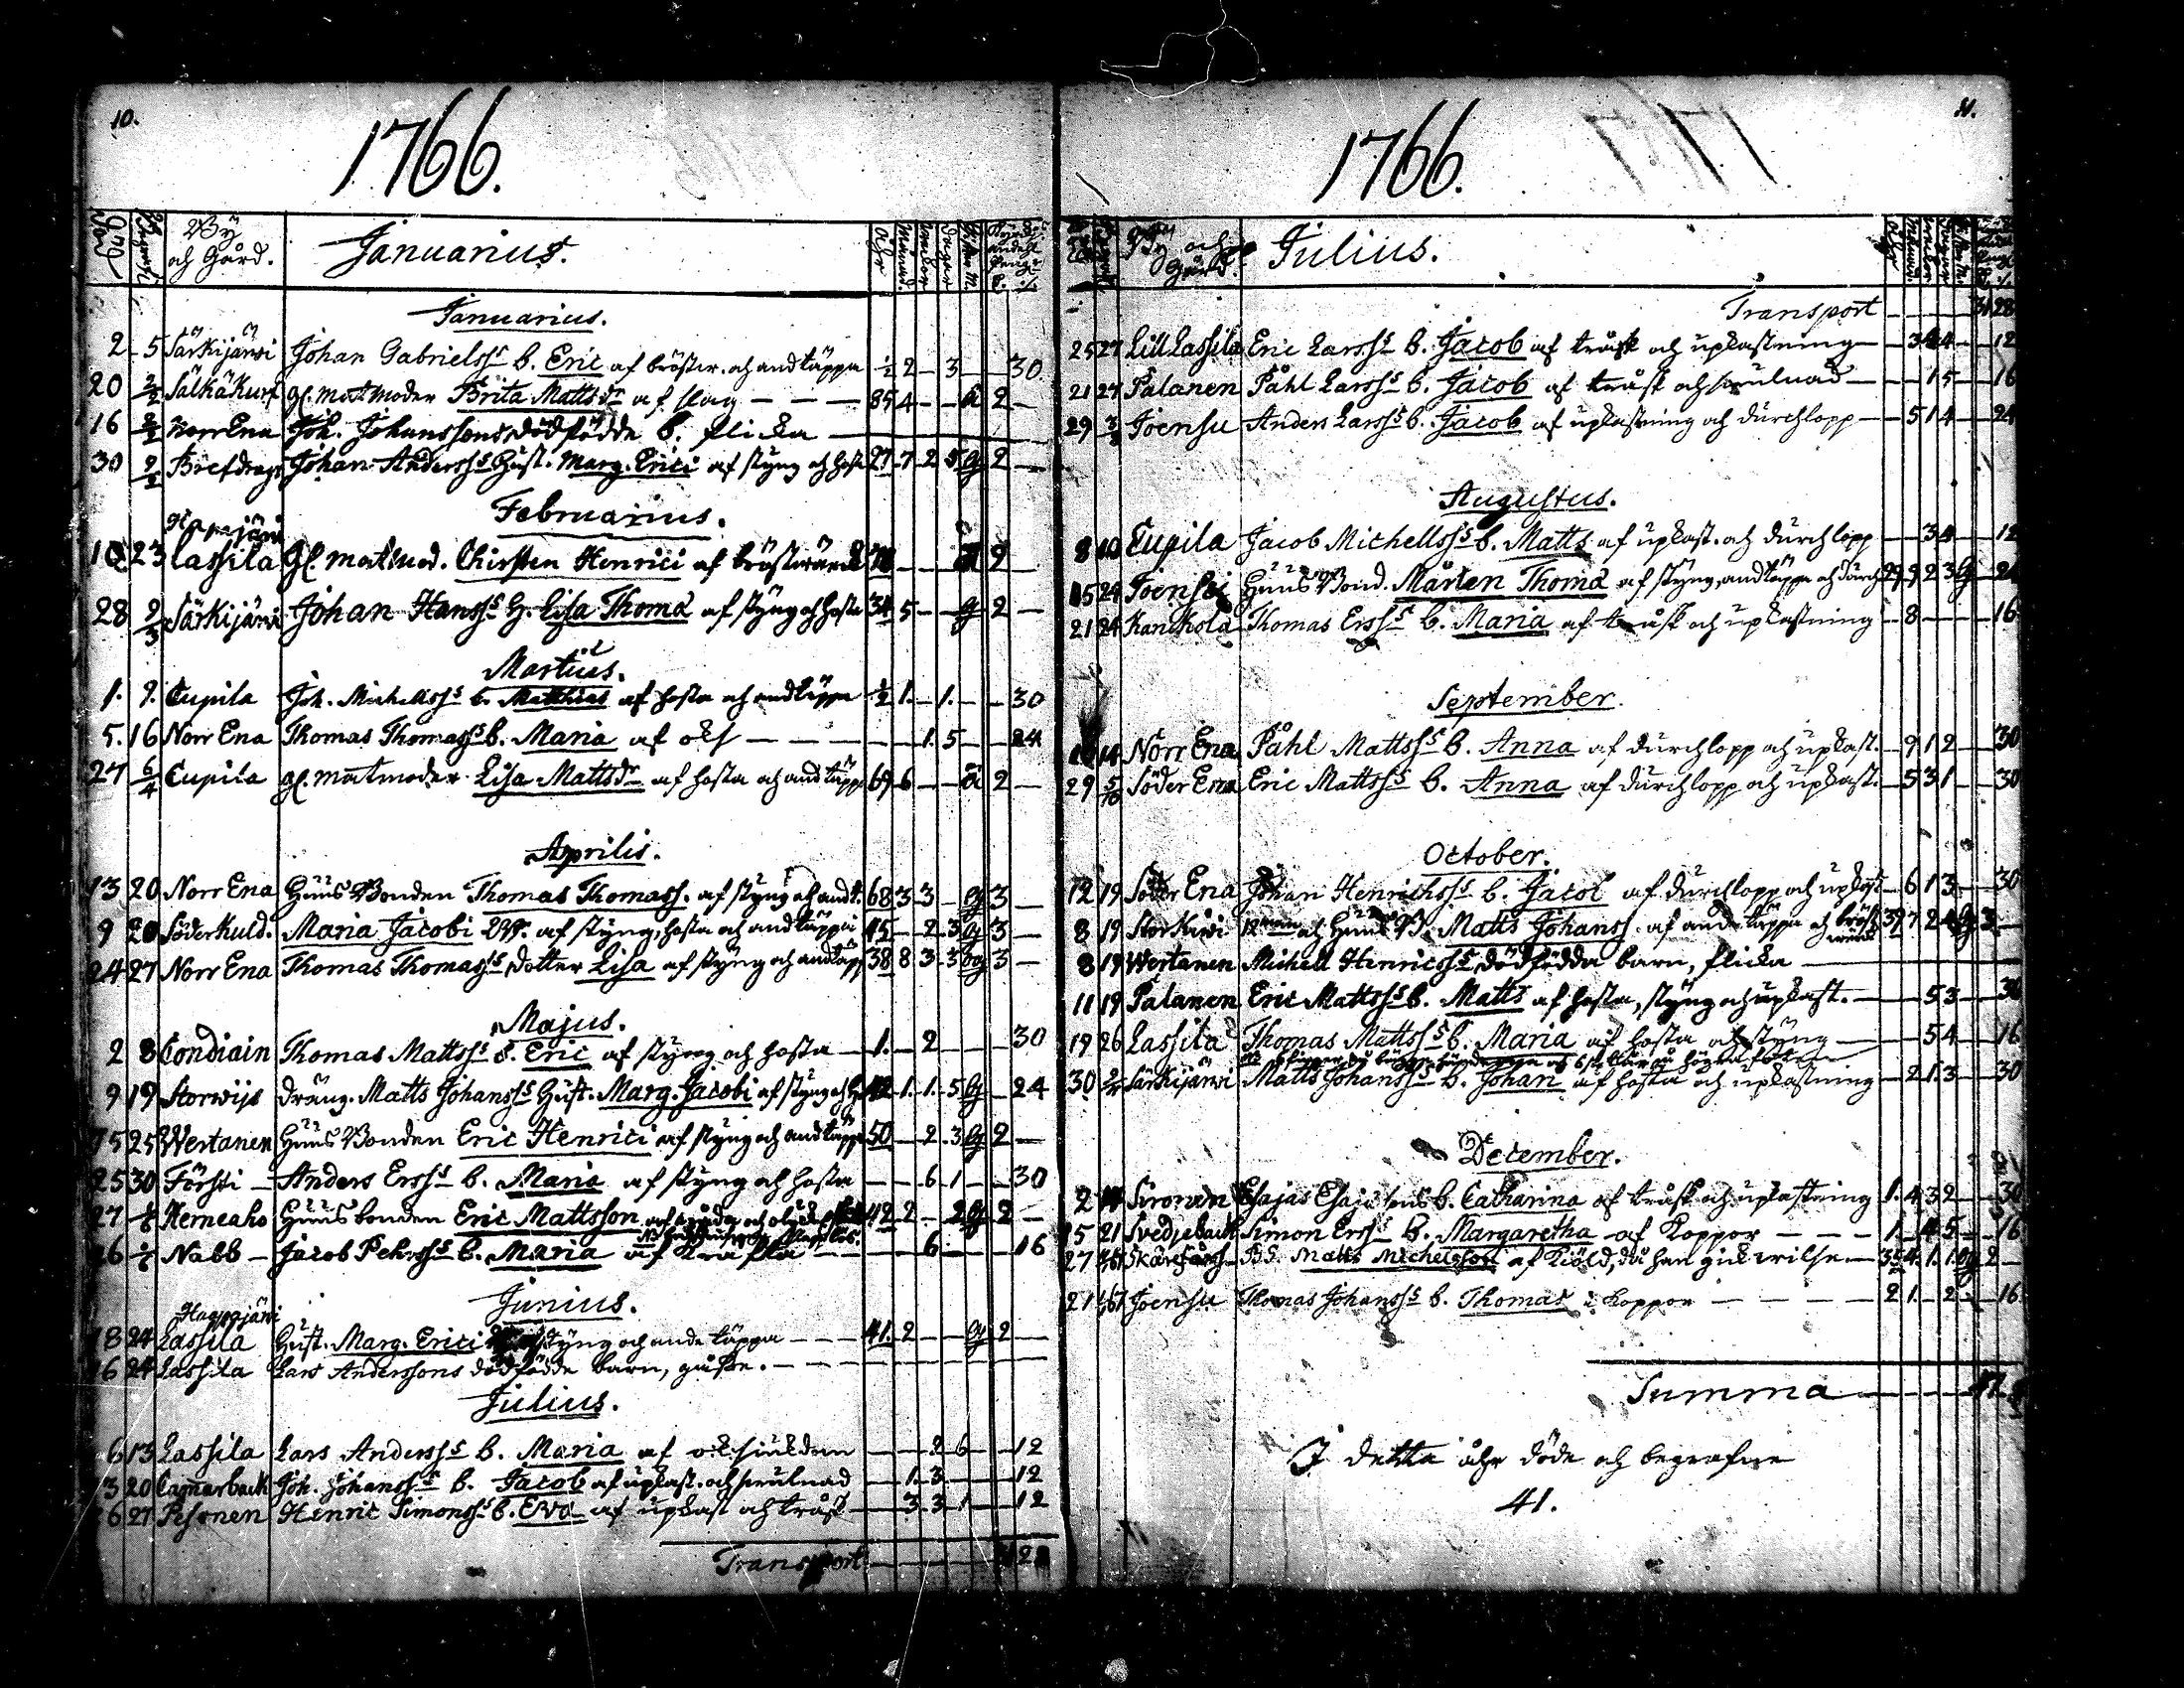 10.
1766.
By och Gård.
Januarius.
Januarius.
2 5 Särkijärvi Johan Gabrielss:s b. Eric af bröstv. och andtäppa ½ 2 - 3 - - 30
20 2/2 Sälkäkurf gl. matmoder Brita Mattsdr af slag - - - 85 4 - - ä 2 -
16 2/2 Norr Ena Joh. Johanssons dödfödde b. flicka
30 2/2 Brefdrag. Johan Anderss:s Hust. Marg. Erici af styng och hosta 27 7 2 5 g 2 -
Februarius.
Haapajärvi
10 23 Lassila gl. matmod. Chirsten Henrici af bröstwärck 78 - - - 2
28 9/3 Särkijärvi Johan Hanss:s H. Lisa Thomæ af styng och hosta 34 5 - - g 2 -
Martius.
1. 9. Eupila Joh. Michellss:s b. Matthias af hosta och andtäppa ½ 1. - 1. - - 30
5. 16 Norr Ena Thomas Thomass:s b. Maria af - - - - - 1. 5 - - 24
27 6/4 Eupila gl. matmoder Lisa Mattsdr af hosta och andtäpp 69 6 - - ä 2 -
Aprilis.
13 20 Norr Ena Huus Bonden Thomas Thomass. af styng och andt. 68 3 3 - g 3 -
9 20 Söderkuld. Maria Jacobi af styng, hosta och andtäppa 45 - 2 3 g 3 -
24 27 Norr Ena Thomas Thomass:s dotter Lisa af styng och andtäpp 38 8 3 3 og 3 -
Majus.
2 8 Condiain Thomas Mattss:s b. Eric af styng och hosta - 1. - 2 - - - 30
9 19 Storwijs dräng. Matts Johanss:s Hust. Marg. Jacobi af styng och 42 1. 1. 5 g - 24
15 25 Wertanen Huus Bonden Eric Henrici af styng och andtäppa 50 - 2 3 g 2 -
25 30 Försti - Anders Erss:s b. Maria af styng och hosta - - 6 1 - - 30
27 Hemeaho Huusbonden Eric Mattsson 42 2 - 2 g 2 -
26 Nabb - Jacob Pehrss:s b. Maria af - - 6 - - - 16
Junius.
Haapajärvi
18 24 Lassila Hust. Marg. Erici af styng och andetäppa - - - 41. 2 - - g 2 -
16 24 Lassila Lars Anderssons dödfödde barn, gosse. - -
Julius.
6 13 Lassila Lars Anderss:s b. Maria af - - 2 6 - - 12
3 20 Camarback Joh. Johanss:s b. Jacob af upkast. och - 1. 3 - - - 12
6 27 Pesonen Henric Simonss:s b. Eva af upkast och tråsk - 3 3 1 - - 12
Transport
11.
1766.
By och Gård.
Julius.
Transport - - - - - 31 28
25 27 Lill Lassila Eric Larss:s b. Jacob af tråsk och upkastning - 3 4 - - 12
21 27 Palanen Påhl Larss:s b. Jacob af tråsk och - - 1 5 - - 16
29 3/8 Joensu Anders Larss:s b. Jacob af upkastning och durchlopp - 5 1 4 - - 24
Augustus.
8 10 Eupila Jacob Michellss:s b. Matts af upkast. och durchlopp - - 3 4 - - 12
15 24 Joensu Huus Bond. Mårten Thomæ af styng, andtäppa och durch 29 9 2 3 g - 24
21 24 Kanckola Thomas Erss:s b. Maria af tråsk och upkastning - 8 - - - - 16
September.
14 Norr Ena Påhl Mattss:s b. Anna af durchlopp och upkast. - 9 1 2 - - 30
29 5/10 Söder Ena Eric Mattss:s b. Anna af durchlopp och upkast. - 5 3 1 - - 30
October.
12 19 Söder Ena Johan Henrichss:s b. Jacob af durchlopp och upkast - 6 1 3 - - 30
8 19 Storkiri och Huus B. Matts Johanss. af andetäppa och bröst wärck 37 7 2 4 g 3 -
8 19 Wertanen Michell Henricss:s dödfödda barn, flicka
11 19 Palanen Eric Mattss:s b. Matts af hosta, styng och upkast. - - 5 3 - - 30
19 26 Lassila Thomas Mattss:s b. Maria af hosta och styng - - 5 4 - - 16
30 Särkijärvi Matts Johanss:s b. Johan af hosta och upkastning - 2 1. 3 - - 30
December.
2 14 Sironen Esajas Esajæsons b. Catharina af tråsk och upkastning 1. 4 3 2 - - 30
15 21 Svedjeback Simon Erss:s b. Margaretha af koppor - - - 1. - 4 5 - - 16
27 Matts Michelsson af kiöld, då han gick wilse - 35 4. 1. 1. og 2 -
21 Joensu Thomas Johanss:s b. Thomas i koppor - - - - 2 1. - 2 - - 16
Summa
I detta åhr döde och begrafne
41.